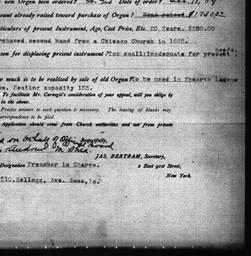 new Organ been ordered? No. 2nd Date of order?
ount already raised toward purchase of Organ?
rticulars of present Instrument, Age, Cost Price, Etc. 20 Years.
rchased second hand from a Chicago Church in 1888.
son for displacing present instrument "Too small: Inadequate for present
needs.
w much is to be realised by sale of old Organ To be used in Epworth League
m. Seating capacity 153.
To facilitate Mr. Carnegie's consideration of your appeal, will you oblige by
in the above.
Precise answer to each question is necessary. The leaving of blanks may
correspondence to be filed.
Application should come from Church authorities and not from private
on behalf of
Respectfully,
JAS. BERTRAM, Secretary,
Designation Preacher in Charge. 2 East 91st Street,
New York.
Kellogg, Ave. Ames, Ia.